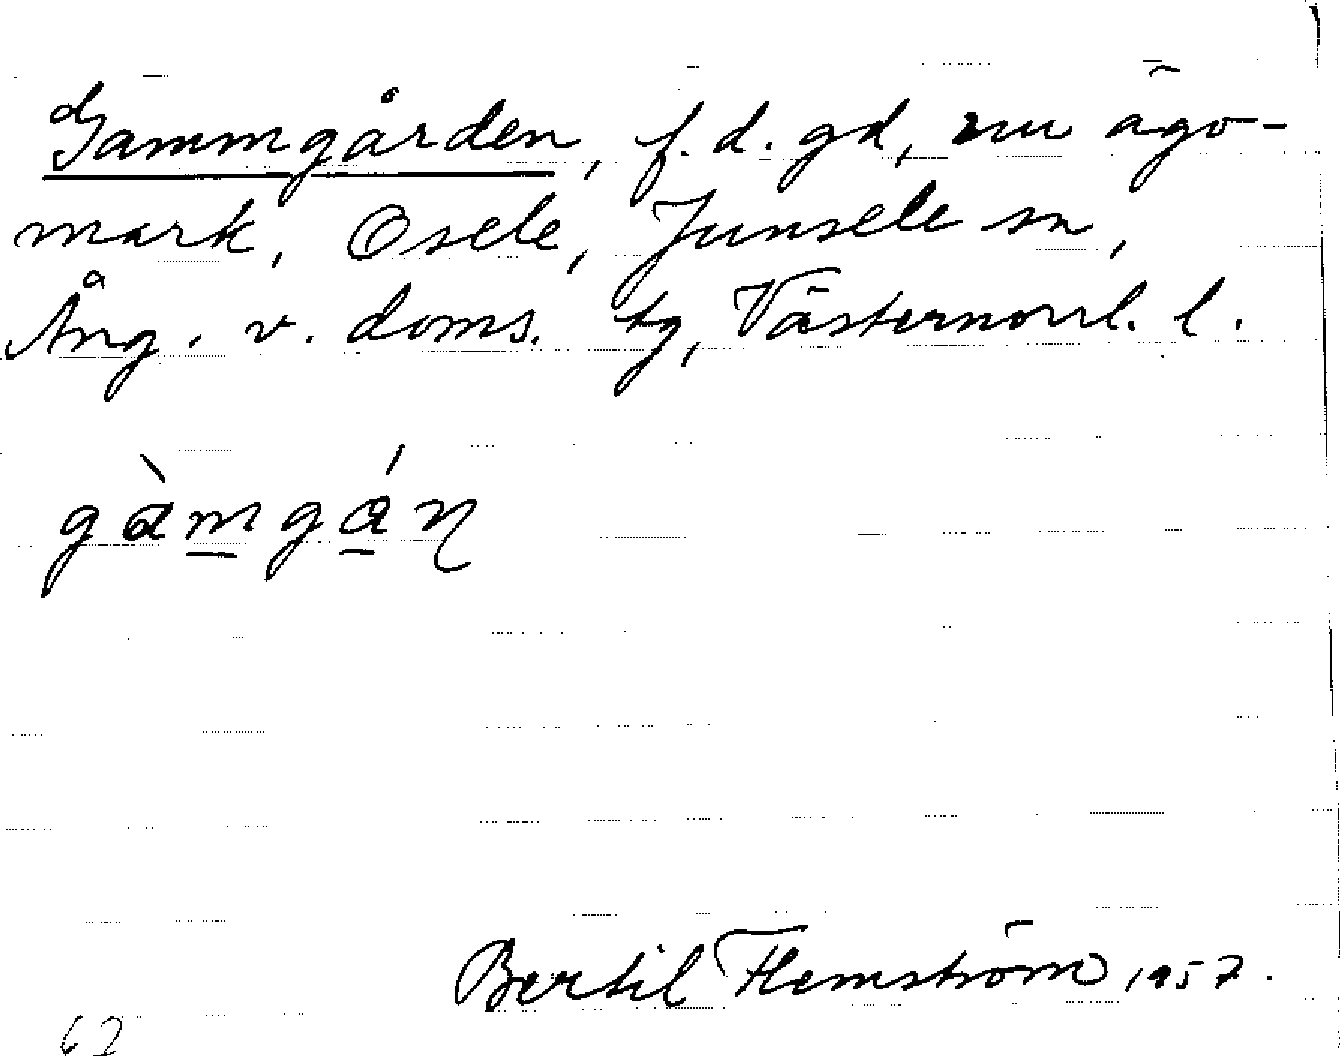 Gammgården, f.d. gd, nu ägo-
mark, Osele, Junsele sn,
Ång. v. doms. tg, Västernorrl. l.
gàmgáɳ
Bertil Flemström 1957.
62